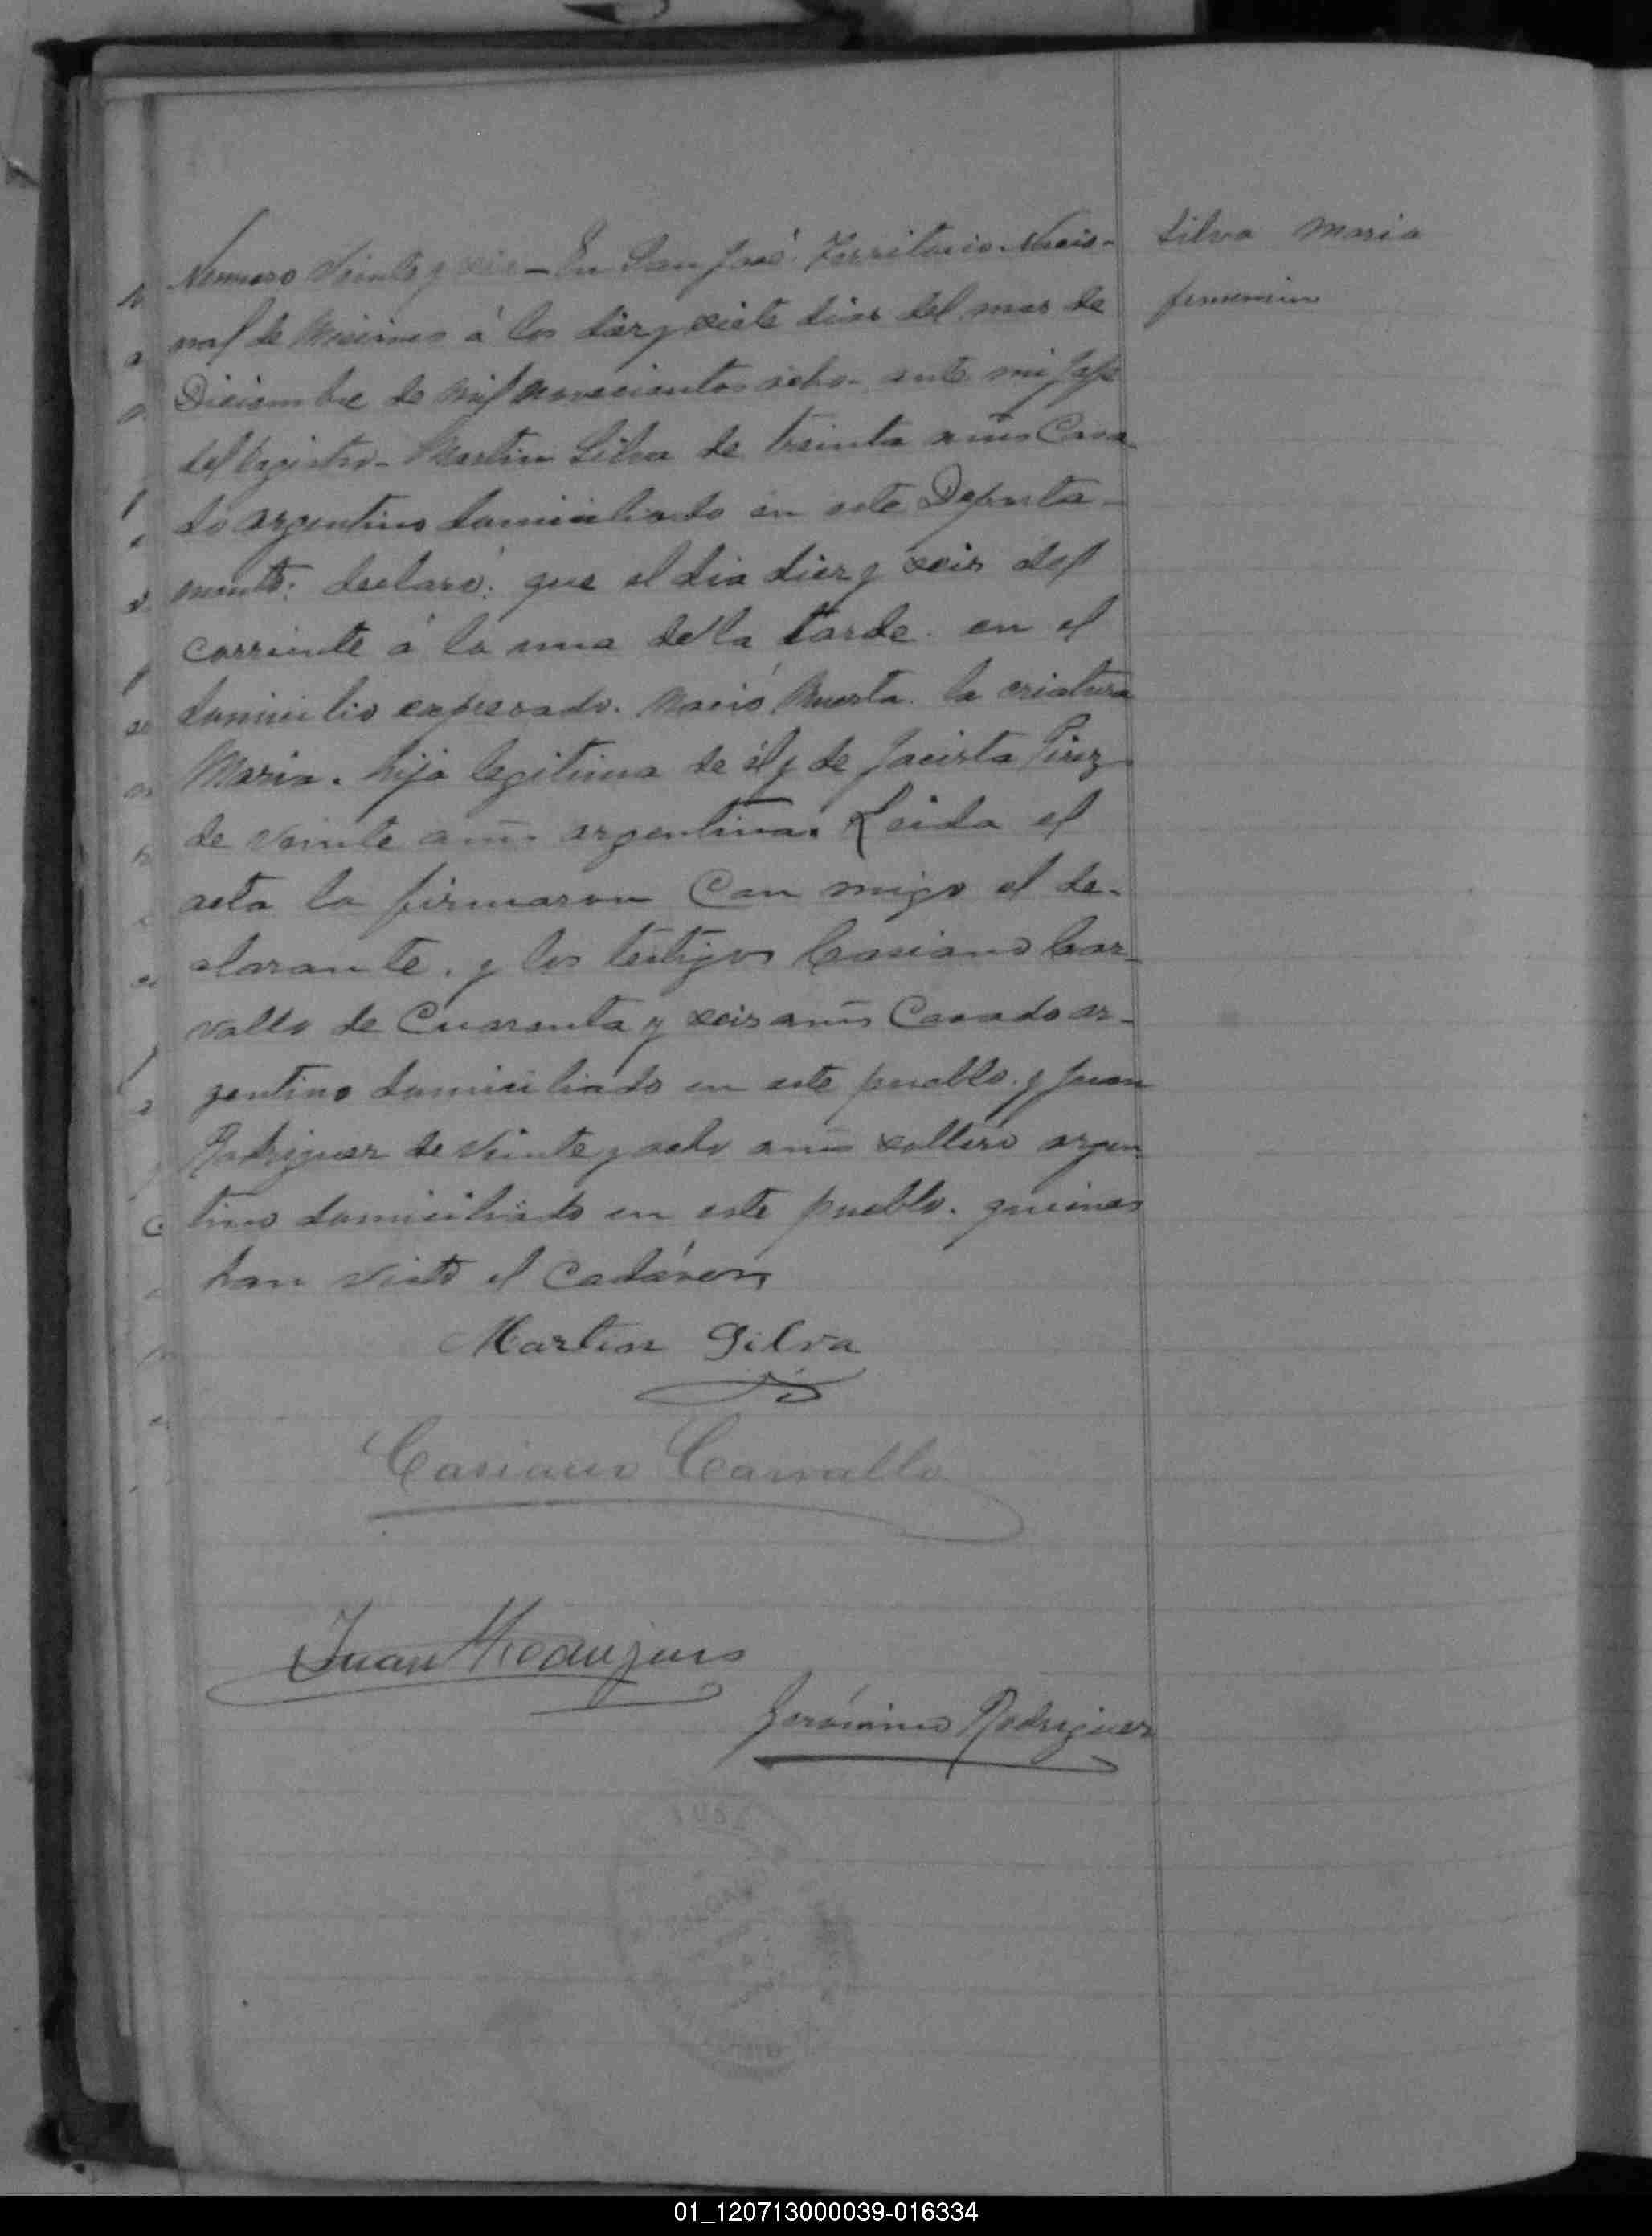 Numero Veinte y seis - En San José Territorio Nacio-
nal de Misiones á los diez y siete dias del mes de
Diciembre de mil novecientos ocho - ante mi Jefe
del Registro - Martin Silva de treinta años Casa-
do argentino domiciliado en este Departa-
mento: declaró: que el dia diez y seis del
corriente á la una de la tarde. en el
domicilio expresado. nació muerta. la criatura
Maria. hija legitima de él y de Jacinta Pirez
de veinte años argentina. Leida el
acta la firmaron Con migo el de-
clarante. y los testigos Casiano Car-
vallo de Cuarenta y seis años Casado ar-
gentino domiciliado en este pueblo. y Juan
Rodriguez de veinte y ocho años soltero argen
tino domiciliado en este pueblo. quienes
han visto el Cadáver
Martin Silva
Casiano Carvallo
Juan Rodriguez
Gerónimo Rodriguez
Silva Maria
femenino
01_120713000039-016334